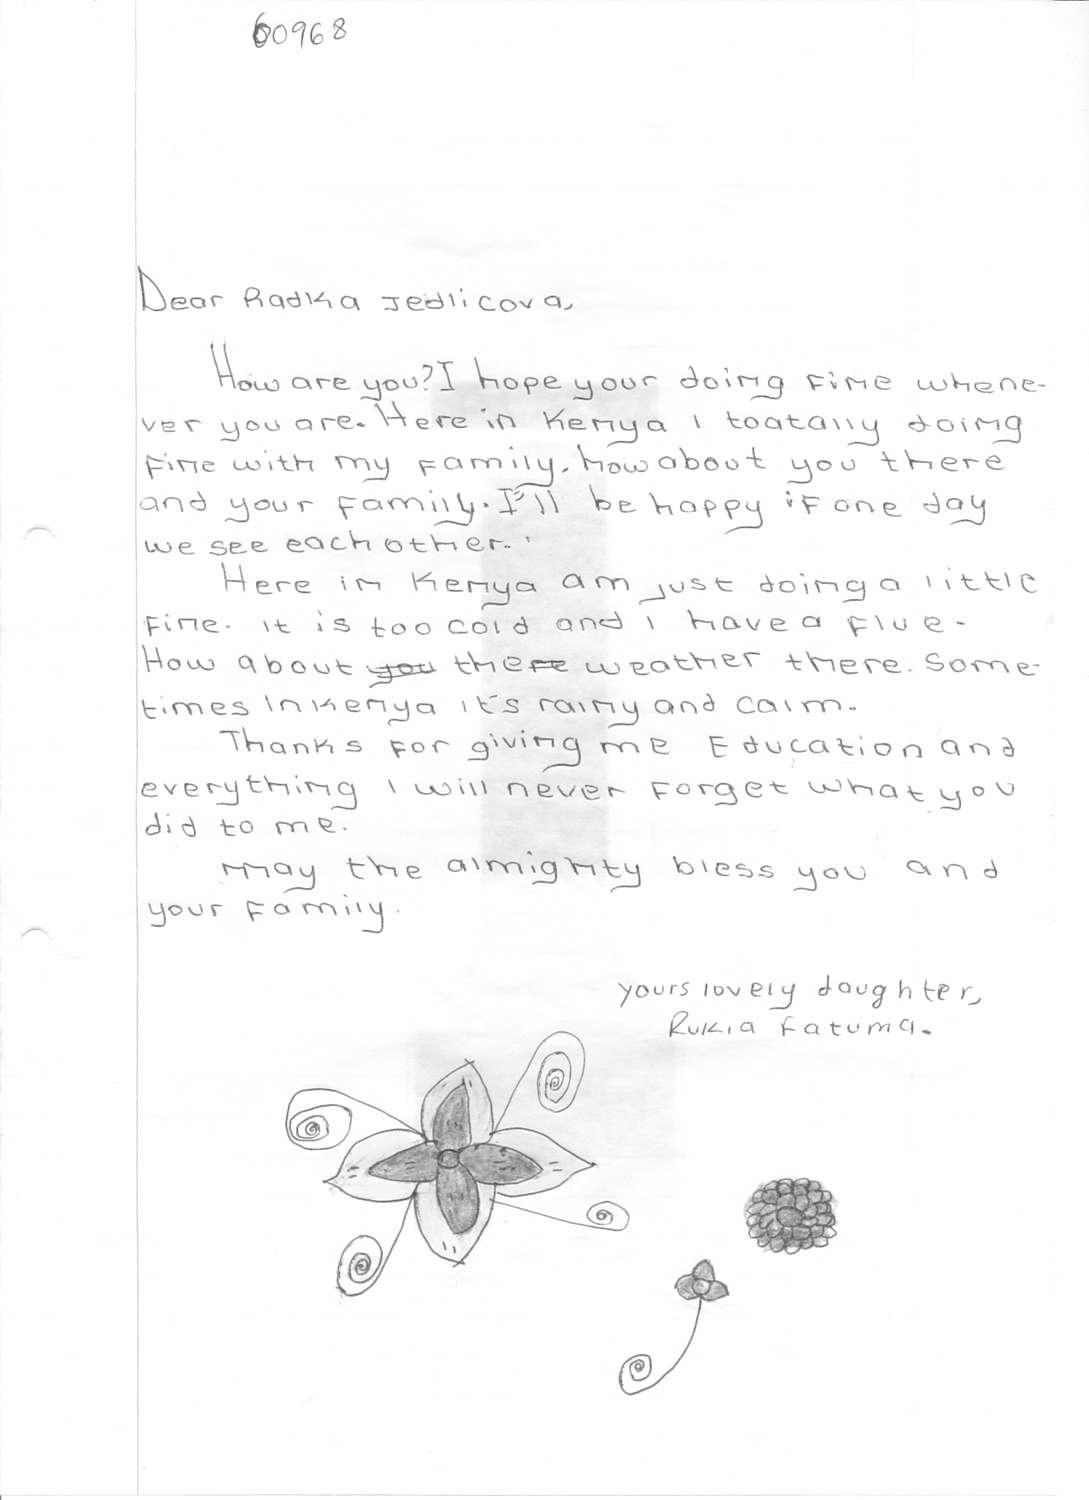 60968
Dear Radka Jedlicova,
How are you? I hope your doing fine whene-
ver you are. Here in Kenya I toatally doing
fine with my family. how about you there
and your family. I'll be happy if one day
we see each other.
Here in Kenya am just doing a little
fine. it is too cold and I have a flue.
How about you there weather there. Some-
times In Kenya it's rainy and calm.
Thanks for giving me Education and
everything I will never forget what you
did to me.
May the almighty bless you and
your family.
yours lovely daughter,
Rukia Fatuma.